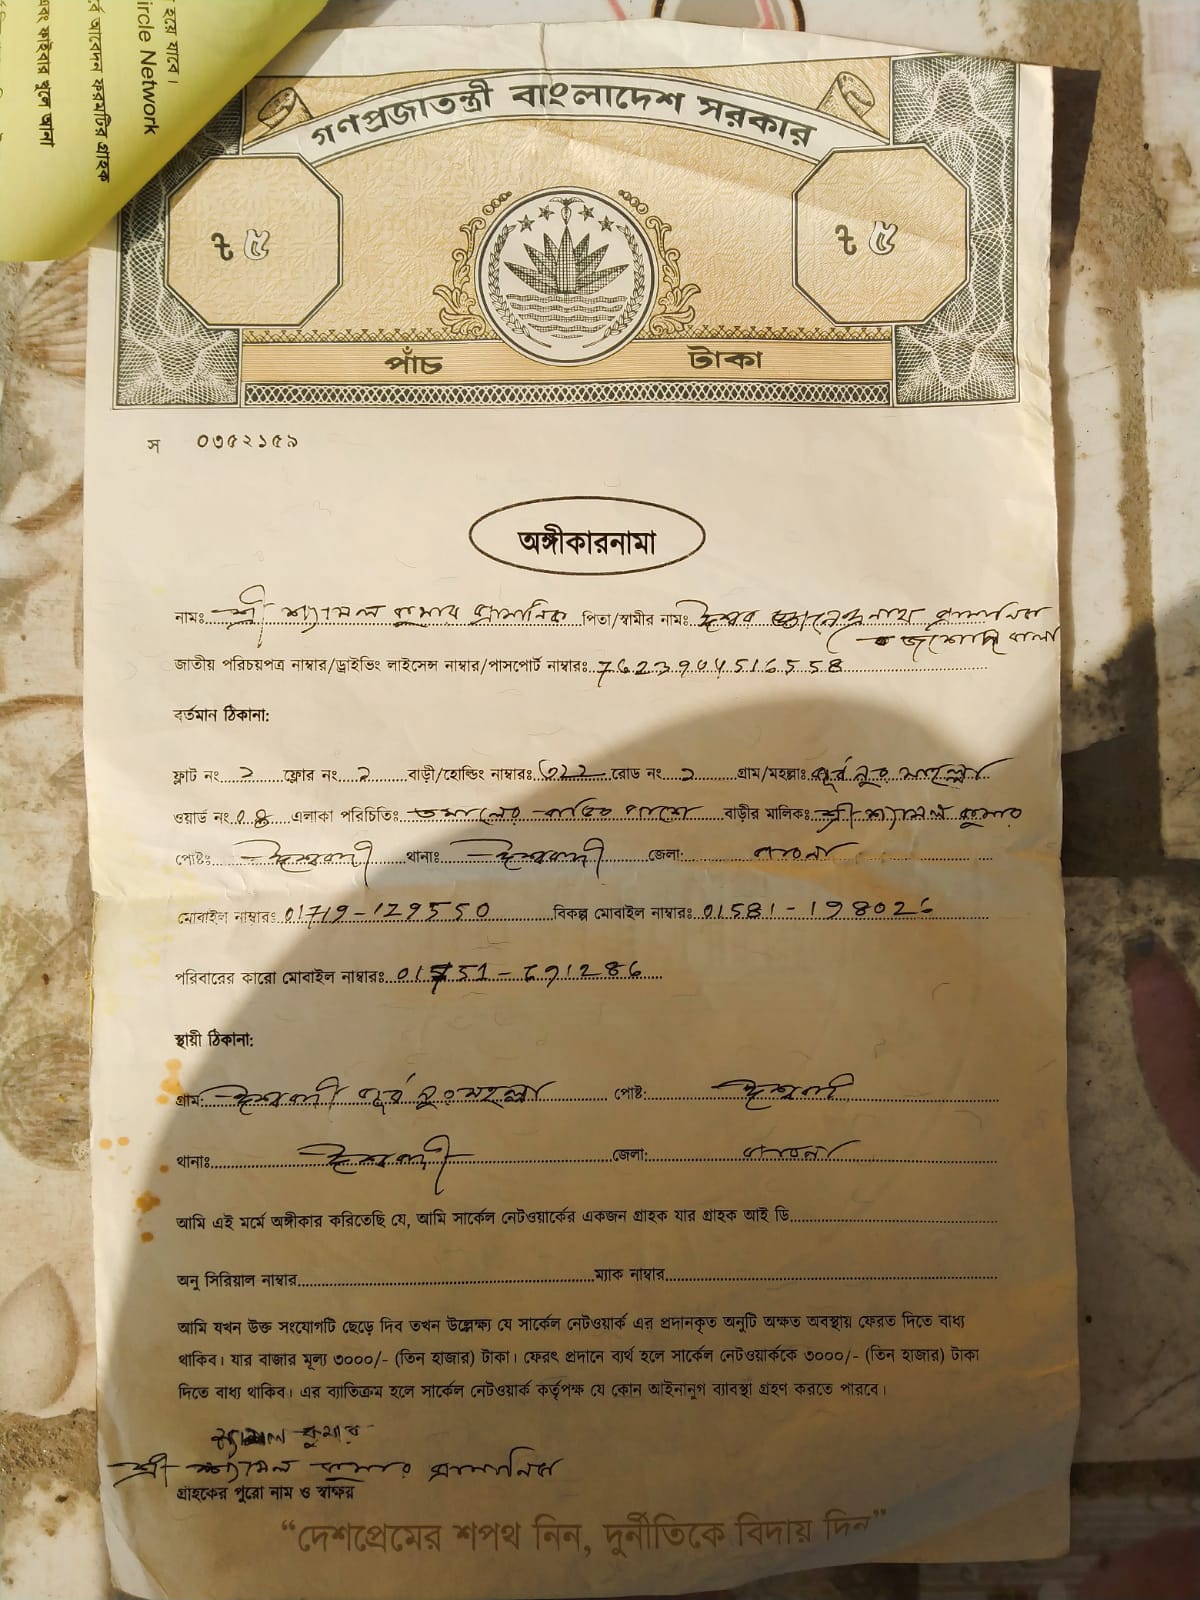 হয়ে যাবে।
ircle Network
র্ব আবেদন ফরমটির গ্রাহক
এবং ফাইবার খুলে আনা
গণপ্রজাতন্ত্রী বাংলাদেশ সরকার
৳ ৫ ৳ ৫
পাঁচ টাকা
স ০৩৫২১৫৯
অঙ্গীকারনামা
নামঃ শ্রী শ্যামল কুমার প্রামানিক পিতা/স্বামীর নামঃ ঈশ্বর জ্ঞানেন্দ্রনাথ প্রামানিক
জশোদা বালা
জাতীয় পরিচয়পত্র নাম্বার/ড্রাইভিং লাইসেন্স নাম্বার/পাসপোর্ট নাম্বারঃ 7623904516558
বর্তমান ঠিকানা:
ফ্লাট নং ২ ফ্লোর নং ২ বাড়ী/হোল্ডিং নাম্বারঃ ৩২২ রোড নং ১ গ্রাম/মহল্লাঃ পূর্ব নুর মহল্লা
ওয়ার্ড নং ০৪ এলাকা পরিচিতিঃ তমালের বাড়ির পাশে বাড়ীর মালিকঃ শ্রী শ্যামল কুমার
পোষ্টঃ ঈশ্বরদী থানাঃ ঈশ্বরদী জেলা: পাবনা
মোবাইল নাম্বারঃ 01719-129550 বিকল্প মোবাইল নাম্বারঃ 01581-198026
পরিবারের কারো মোবাইল নাম্বারঃ
স্থায়ী ঠিকানা:
গ্রাম: ঈশ্বরদী পূর্ব নুরমহল্লা পোষ্ট: ঈশ্বরদী
থানাঃ ঈশ্বরদী জেলা: পাবনা
আমি এই মর্মে অঙ্গীকার করিতেছি যে, আমি সার্কেল নেটওয়ার্কের একজন গ্রাহক যার গ্রাহক আই ডি
অনু সিরিয়াল নাম্বার ম্যাক নাম্বার
আমি যখন উক্ত সংযোগটি ছেড়ে দিব তখন উল্লেক্ষ্য যে সার্কেল নেটওয়ার্ক এর প্রদানকৃত অনুটি অক্ষত অবস্থায় ফেরত দিতে বাধ্য
থাকিব। যার বাজার মূল্য ৩০০০/- (তিন হাজার) টাকা। ফেরৎ প্রদানে ব্যর্থ হলে সার্কেল নেটওয়ার্ককে ৩০০০/- (তিন হাজার) টাকা
দিতে বাধ্য থাকিব। এর ব্যাতিক্রম হলে সার্কেল নেটওয়ার্ক কর্তৃপক্ষ যে কোন আইনানুগ ব্যাবস্থা গ্রহণ করতে পারবে।
শ্যামল কুমার
শ্রী শ্যামল কুমার প্রামানিক
গ্রাহকের পুরো নাম ও স্বাক্ষর
“দেশপ্রেমের শপথ নিন, দুর্নীতিকে বিদায় দিন”